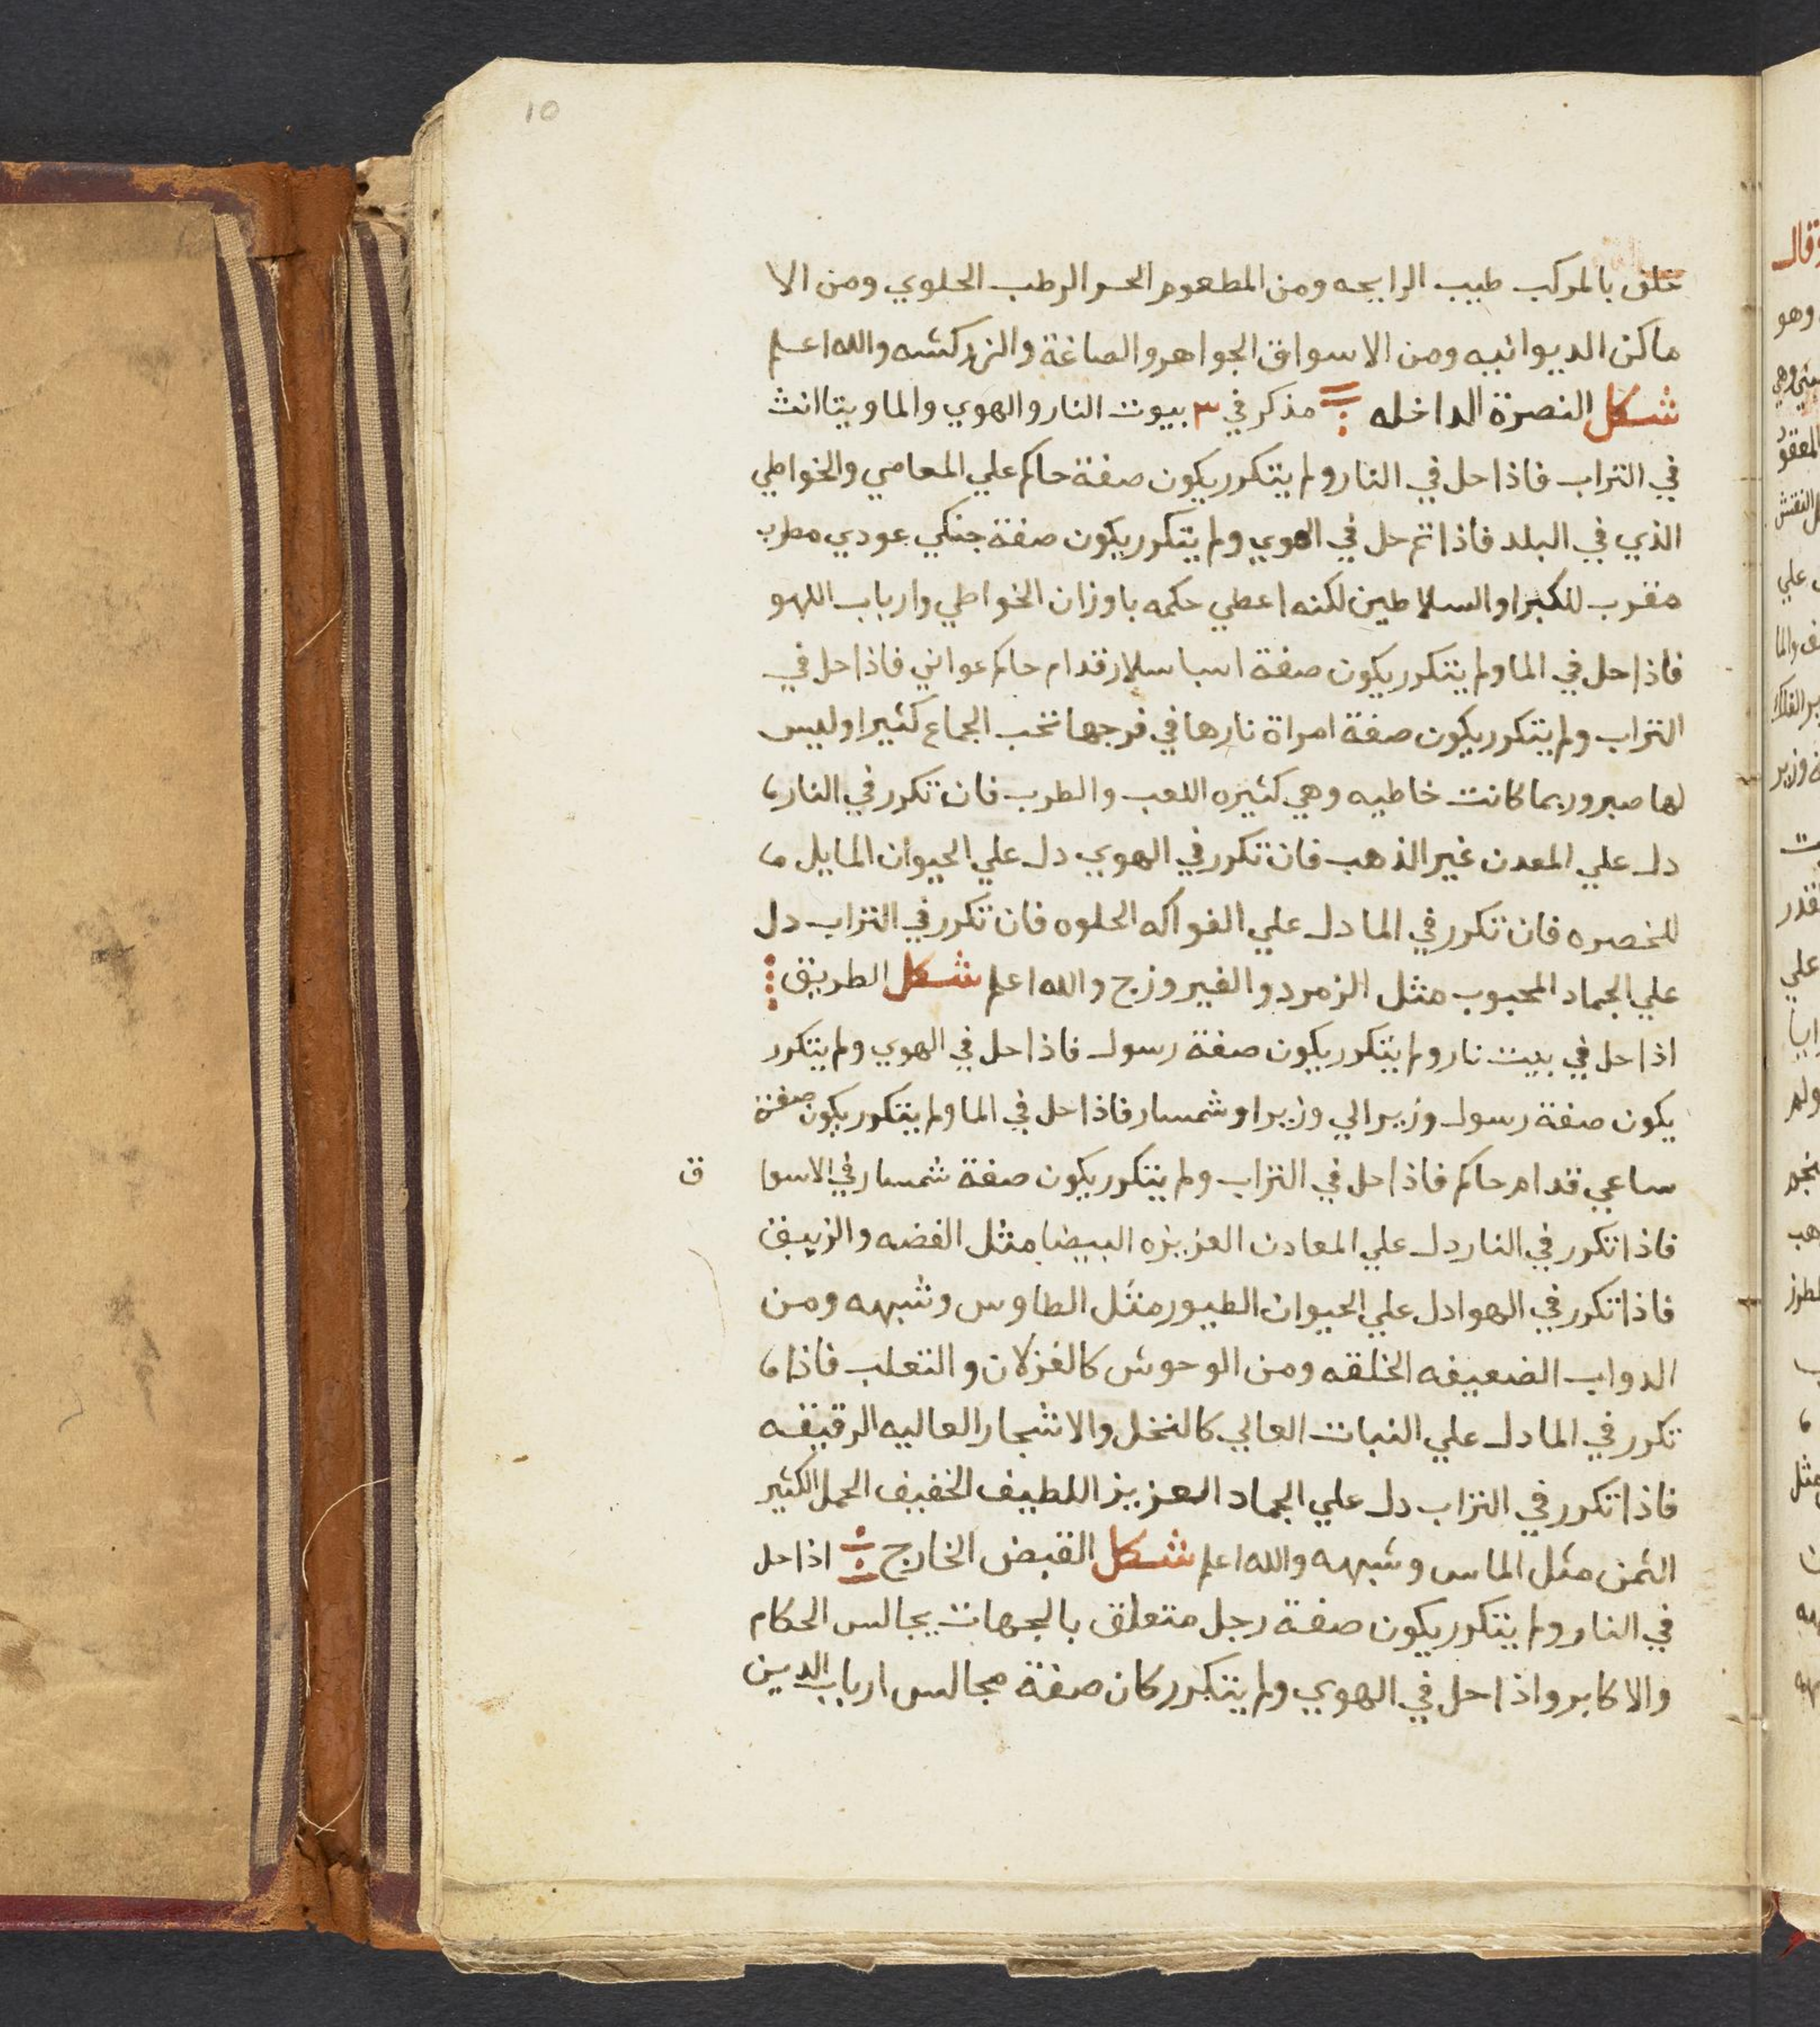 10
خلف بالمركب طيب الرايحه ومن المطعوم الحر الرطب الحلوي ومن الا
ماكن الديوانيه ومن الاسواق الجواهر والصاغة والزركشه والله اعلم
شكل النصرة الداخله مذكر في ٣ بيوت النار والهوي والما ويتاانث
في التراب فاذا حل في النار ولم يتكرر يكون صفة حاكم علي المعاصي والخواطي
الذي في البلد فاذا تم حل في الهوي ولم يتكرر يكون صفة جنكي عودي مطرب
مقرب للكبرا والسلاطين لكنه اعطي حكمه باوزان الخواطي وارباب اللهو
فاذا حل في الما ولم يتكرر يكون صفة اسباسلار قدام حاكم عواني فاذا حل في
التراب ولم يتكرر يكون صفة امراة نارها في فرجها تحب الجماع كثيرا وليس
لها صبر وربما كانت خاطيه وهي كثيره اللعب والطرب فان تكرر في النار
دل علي المعدن غير الذهب فان تكرر في الهوي دل علي الحيوان المايل
للخصره فان تكرر في الما دل علي الفواكه الحلوه فان تكرر في التراب دل
علي الجماد المحبوب مثل الزمرد والفيروزج والله اعلم شكل الطريق
اذا حل في بيت نار ولم يتكرر يكون صفة رسول فاذا حل في الهوي ولم يتكرر
يكون صفة رسول وزير الي وزير او شمسار فاذا حل في الما ولم يتكرر يكون صفة
ساعي قدام حاكم فاذا حل في التراب ولم يتكرر يكون صفة شمسار في الاسوا ق
فاذا تكرر في النار دل علي المعادن العزيزه البيضا مثل الفضه والزيبق
فاذا تكرر في الهوا دل علي الحيوان الطيور مثل الطاوس وشبهه ومن
الدواب الضعيفه الخلقه ومن الوحوش كالغزلان والتعلب فاذا
تكرر في الما دل علي النبات العالي كالنخل والاشجار العاليه الرقيقه
فاذا تكرر في التراب دل علي الجماد العزيز اللطيف الخفيف الحمل الكثير
الثمن مثل الماس وشبهه والله اعلم شكل القبض الخارج اذا حل
في النار ولم يتكرر يكون صفة رجل متعلق بالجهات يجالس الحكام
والاكابر واذا حل في الهوي ولم يتكرر كان صفة مجالس ارباب الدين